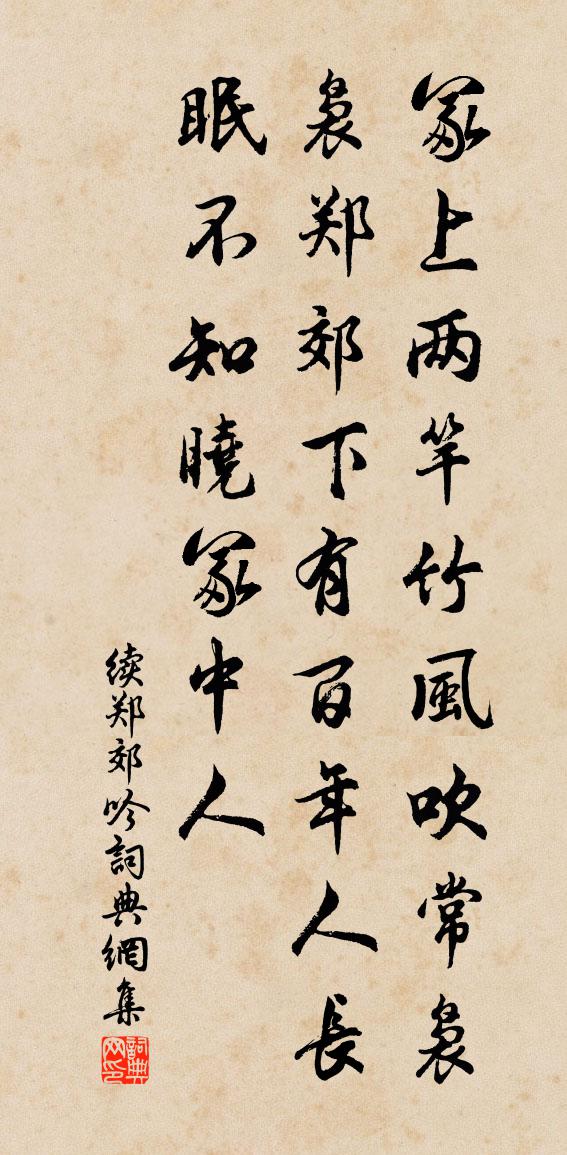 冢上两竿竹風吹常袅
袅郑郊下有百年人長
眠不知曉冢中人
续郑郊吟詞典網集
詞典网印